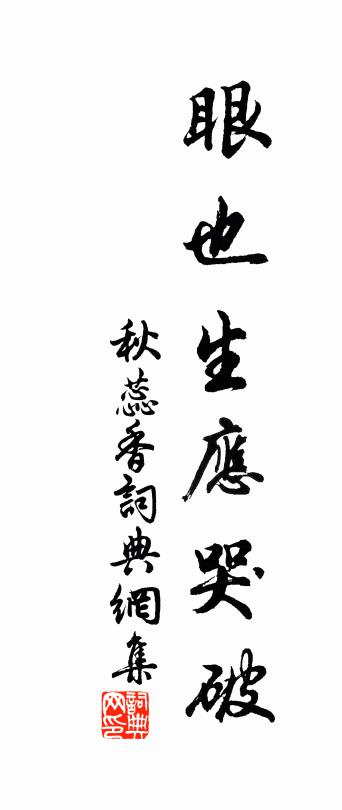 眼也生應哭破
秋蕊香詞典網集
詞典网印